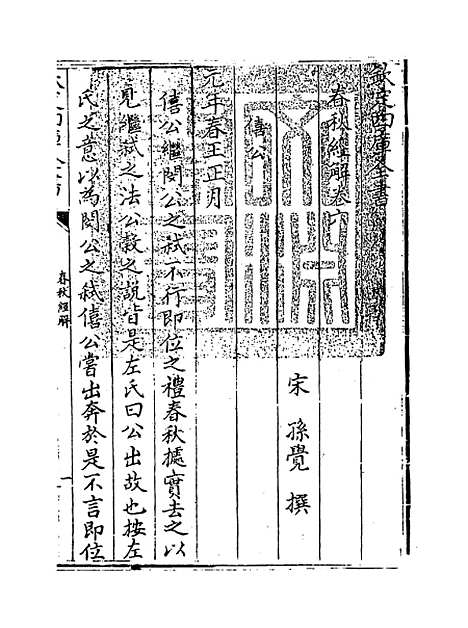 欽定四庫全書
春秋經解卷六
宋 孫覺 撰
僖公
元年春王正月
僖公繼閔公之弑不行即位之禮春秋據實去之以
見繼弑之法公穀之說皆是左氏曰公出故也按左
氏之意以為閔公之弑僖公嘗出奔於是不言即位
春秋經解